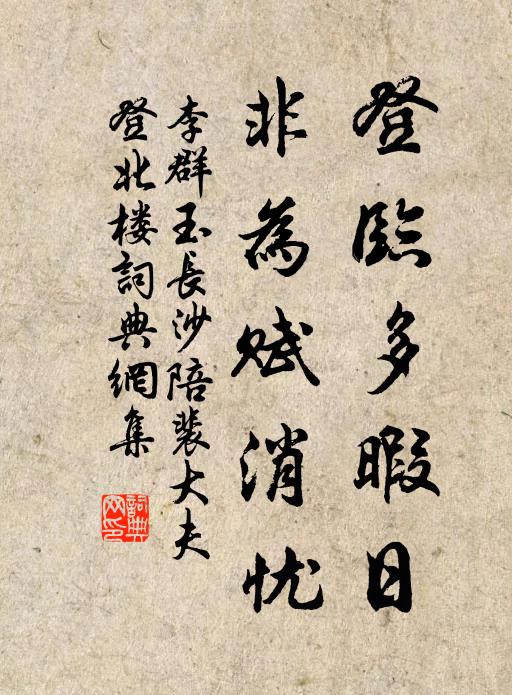 登臨多暇日
非為赋消忧
李群玉長沙陪裴大夫
登北楼詞典網集
詞典
网印